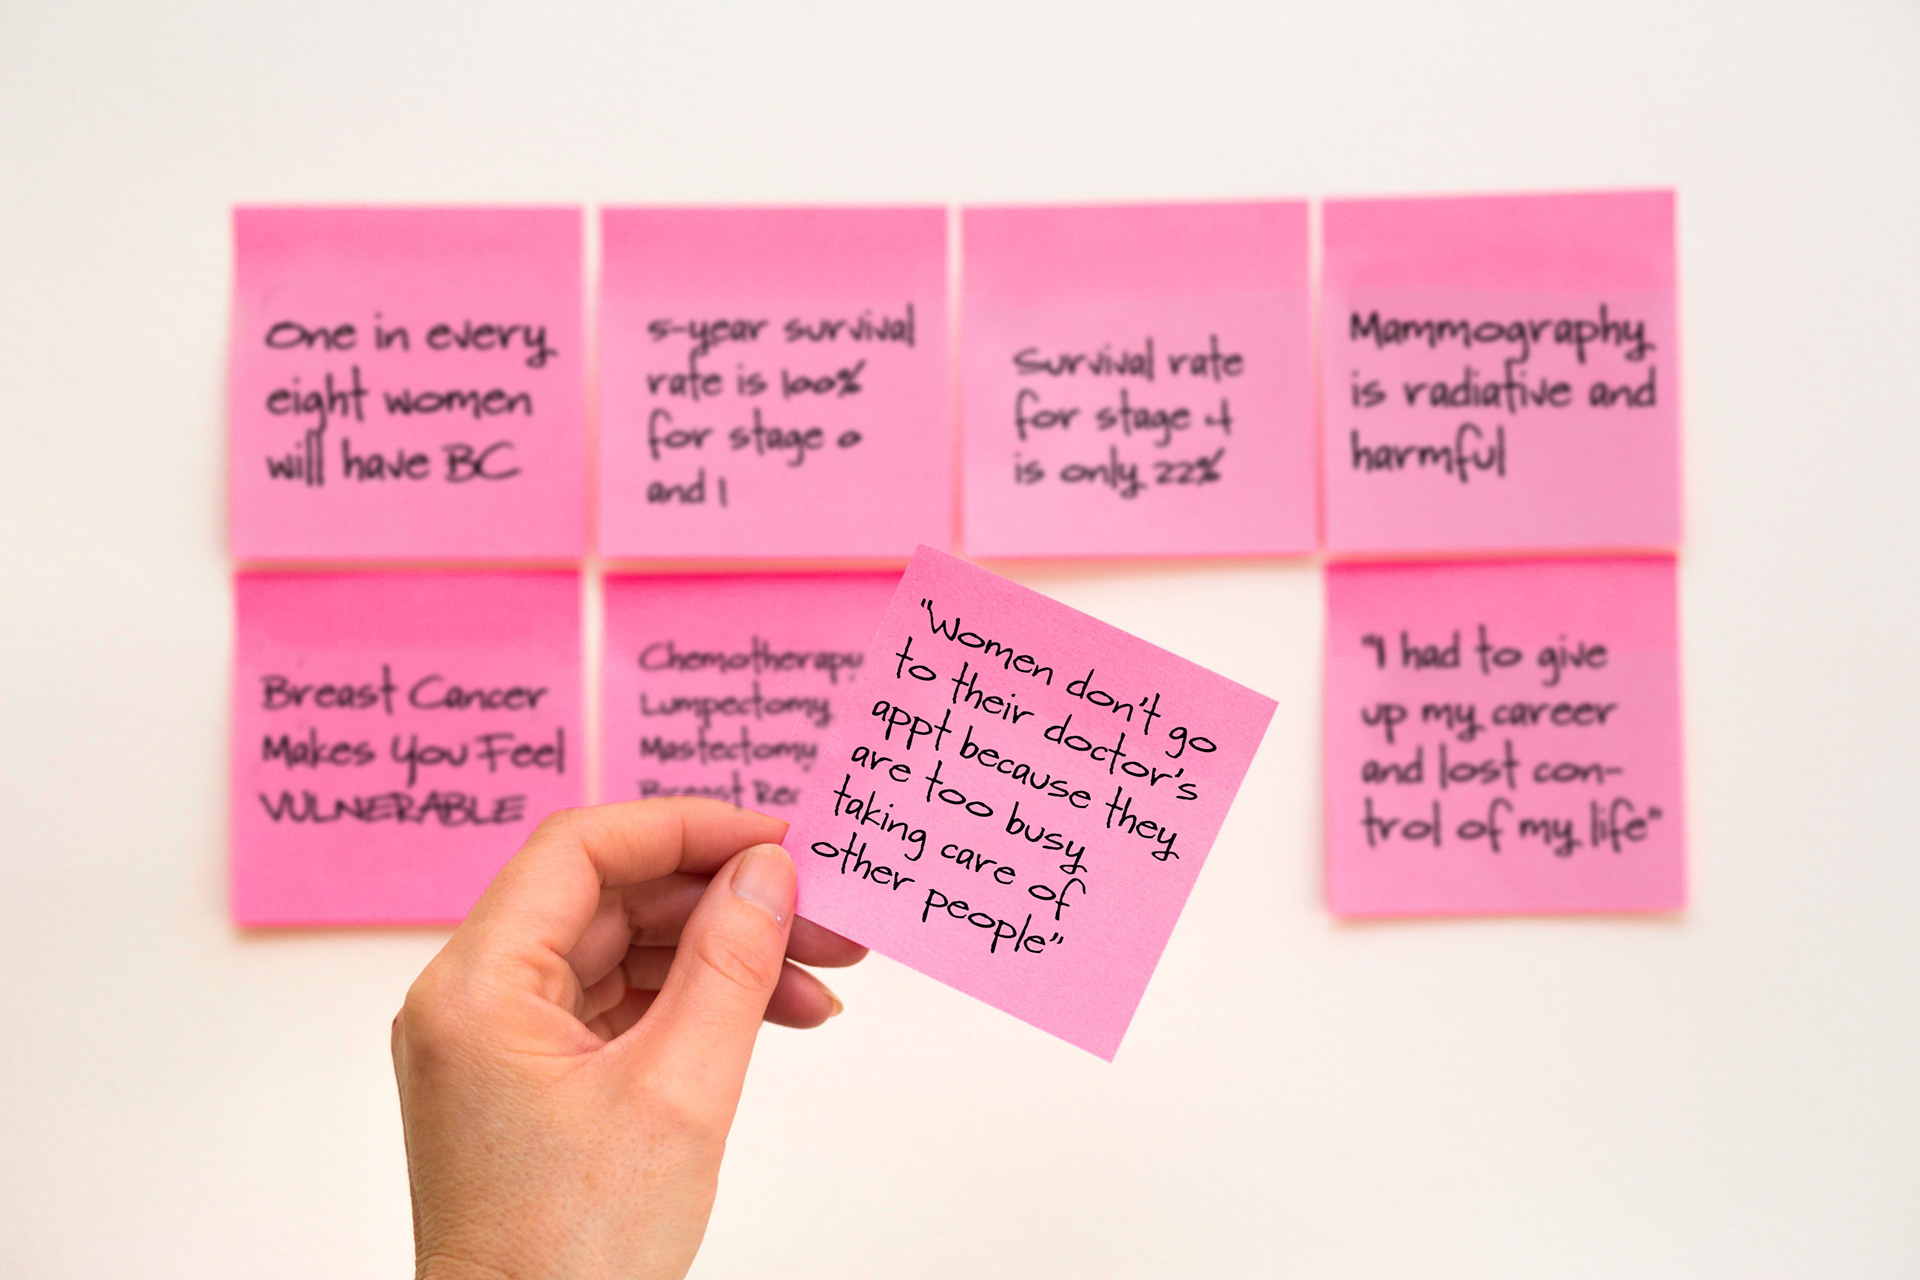 One in every
eight women
will have BC
5-year survival
rate is 100%
for stage 0
and 1
Survival rate
for stage 4
is only 22%
Mammography
is radiative and
harmful
Breast Cancer
Makes You Feel
VULNERABLE
Chemotherapy
Lumpectomy
Mastectomy
Breast
"Women don't go
to their doctor's
appt because they
are too busy
taking care of
other people"
"I had to give
up my career
and lost con-
trol of my life"